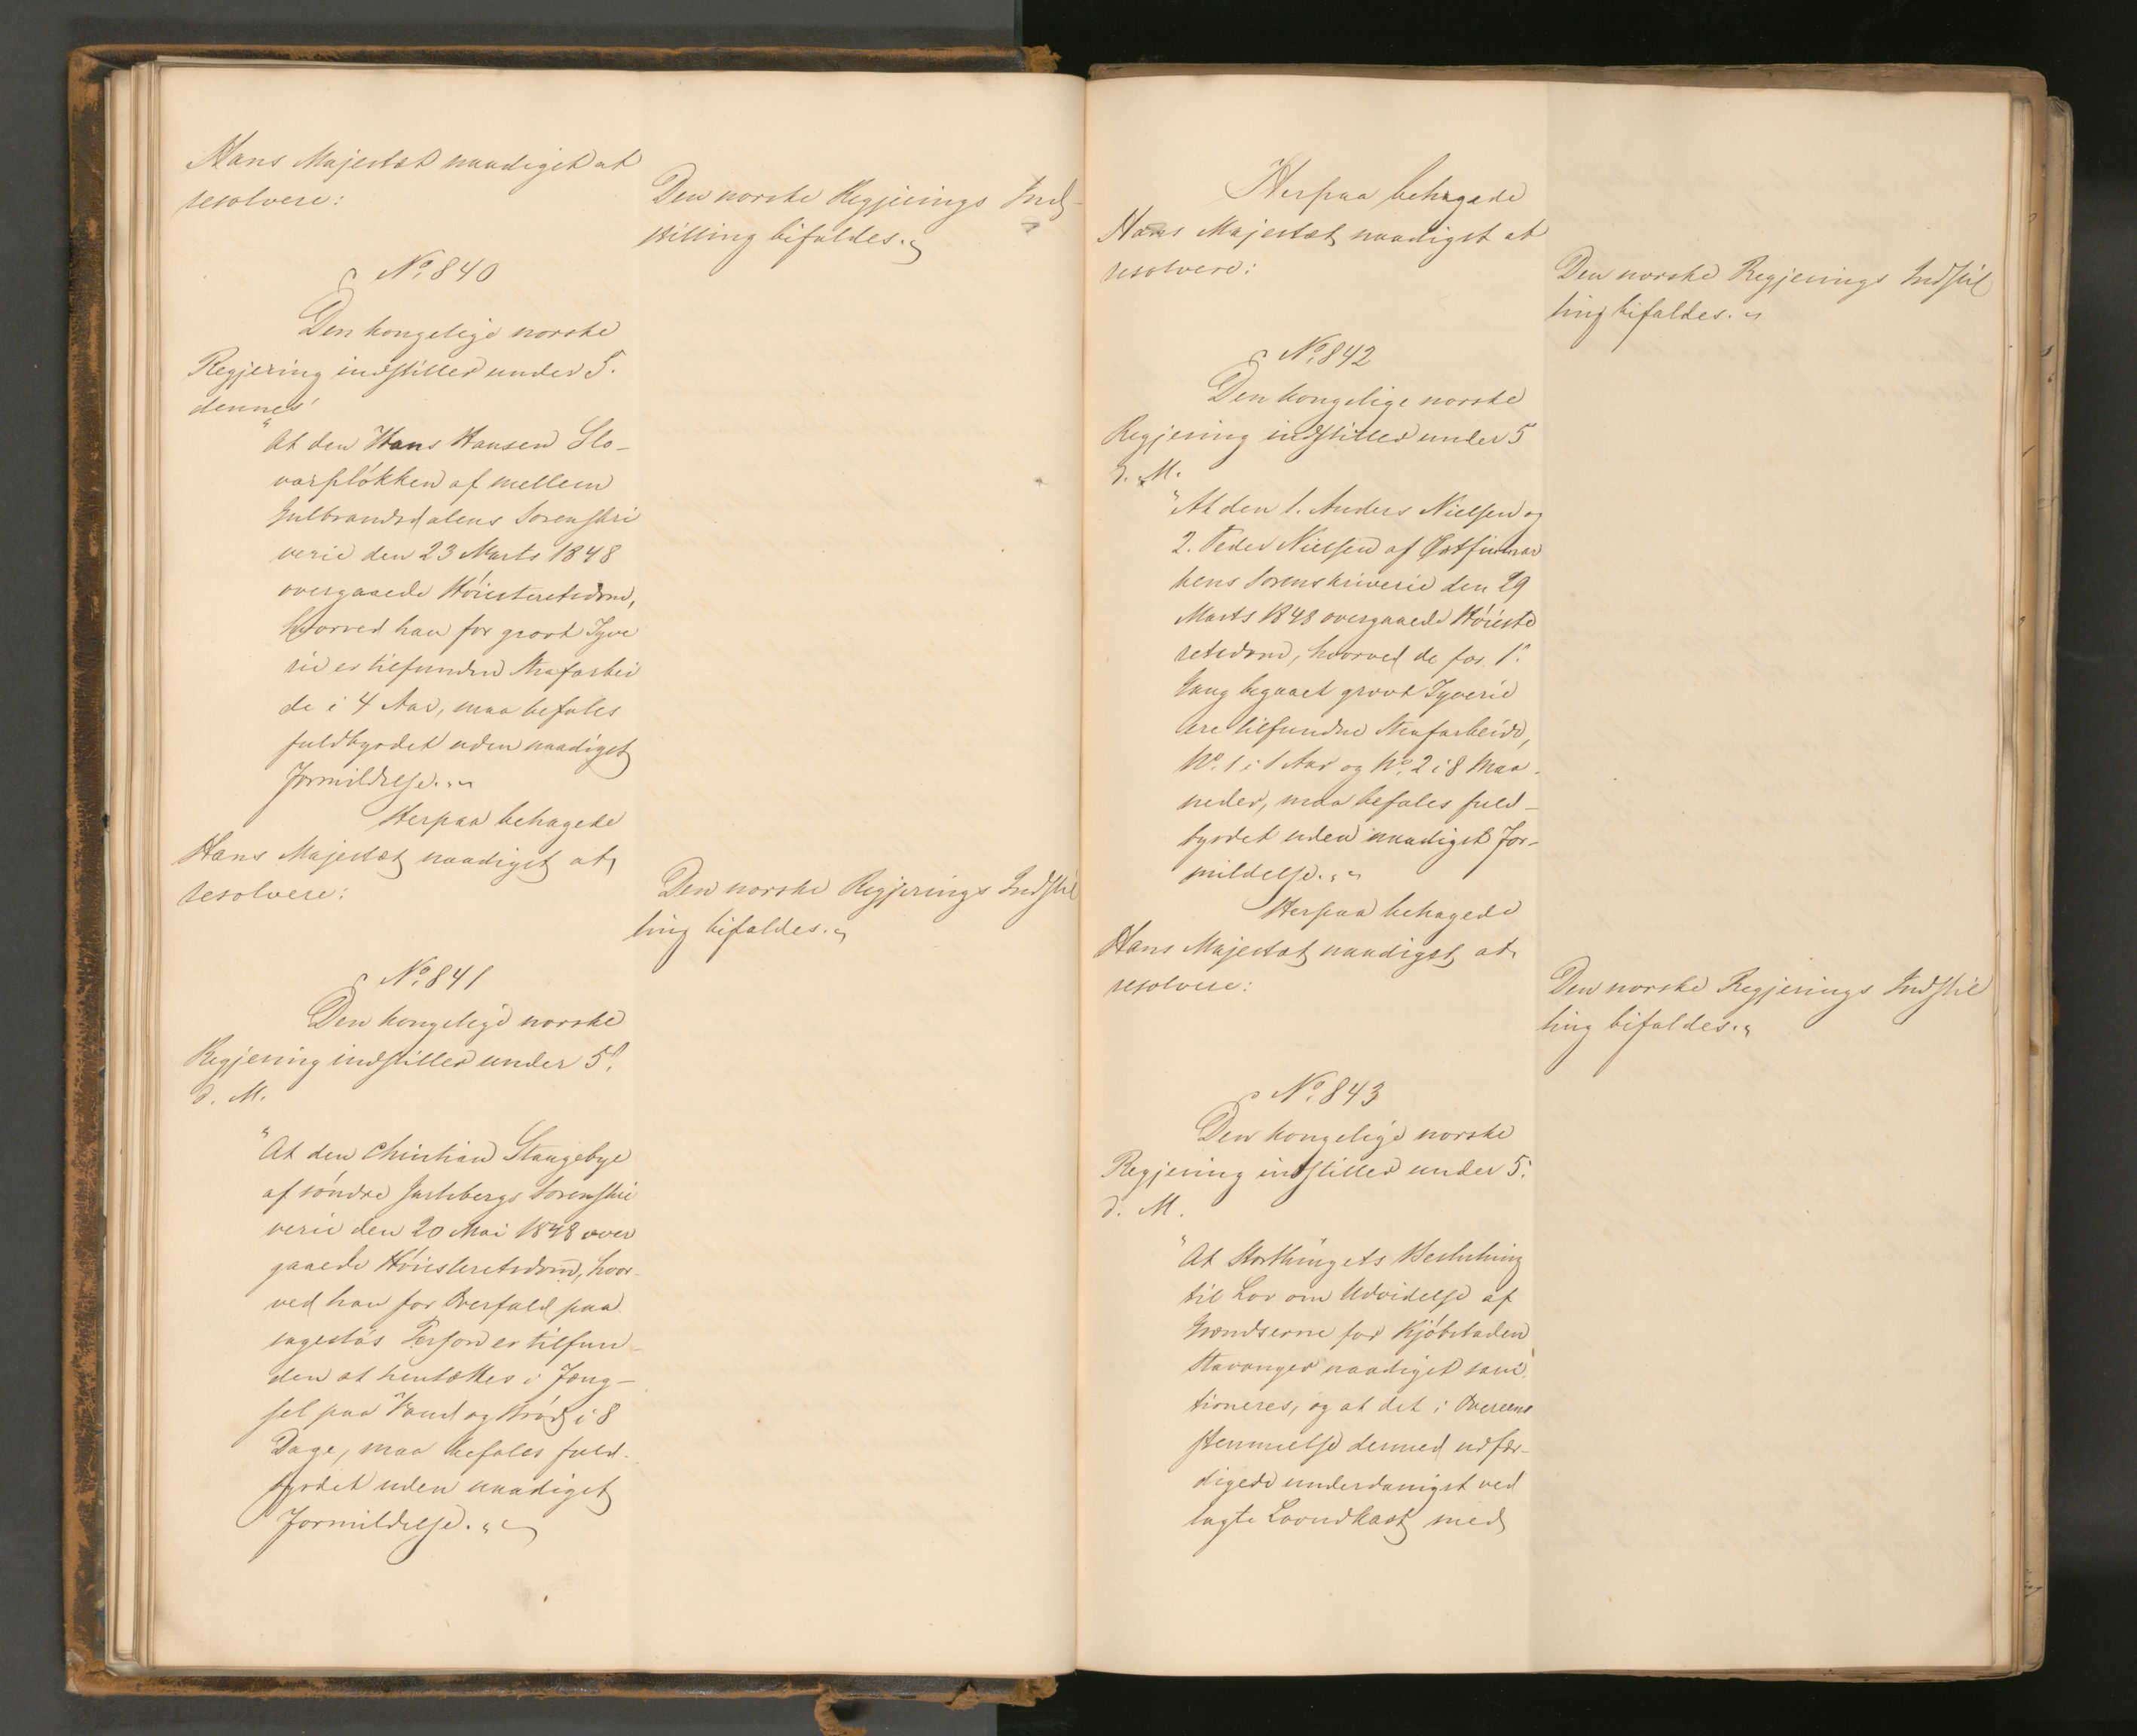 Hans Majestæt naadigst at
resolvere:
Den norske Regjerings Ind-
stilling bifaldes.
No. 840
Den kongelige norske
Regjering indstiller under 5.
dennes
"At den Hans Hansen Slo-
varpløkken af mellem
Gulbrandsdalens Sorenskri
verie den 23 Marts 1848
overgaaede Höiesteretsdom,
hvorved han for groot Tyve
rie er tilfunden Strafarbei
de i 4 Aar, maa befales
fuldbyrdet uden naadigst
Formildelse."
Herpaa behagede
Hans Majestæt naadigst at
resolvere:
Den norske Regjerings Indstil
ling bifaldes.
No. 841
Den kongelige norske
Regjering indstiller under 5.
d. M.
"At den Christian Stangebye
af söndre Jarlsbergs Sorenskri
verie den 20 Mai 1848 over
gaaede Höiesteretsdom, hvor-
ved han for Overfald paa
sageslös Person er tilfun-
den at hensættes i Fæng-
sel paa Vand og Bröd i 8
Dage, maa befales fuld-
byrdet uden naadigst
Formildelse."
Herpaa behagede
Hans Majestæt naadigst at
resolvere:
Den norske Regjerings Indstil
ling bifaldes.
No. 842
Den kongelige norske
Regjering indstiller under 5
d. M.
"At den 1. Anders Nielsen og
2. Peder Nielsen af Østfinmar
kens Sorenskriverie den 29
Marts 1848 overgaaede Höieste
retsdom, hvorved de for 1.
Gang begaaet groot Tyverie
ere tilfundne Strafarbeide,
No. 1 i 1 Aar og No. 2 i 8 Maa-
neder, maa befales fuld-
byrdet uden naadigst For-
mildelse."
Herpaa behagede
Hans Majestæt naadigst at
resolvere:
Den norske Regjerings Indstil
ling bifaldes.
No. 843
Den kongelige norske
Regjering indstiller under 5.
d. M.
"At Storthingets Beslutning
til Lov om Udvidelse af
Grændserne for Kjöbstaden
Stavanger naadigst sanc
tioneres, og at det i Overeens
stemmelse dermed udfær-
digede underdanigst ved
lagte Lovudkast med